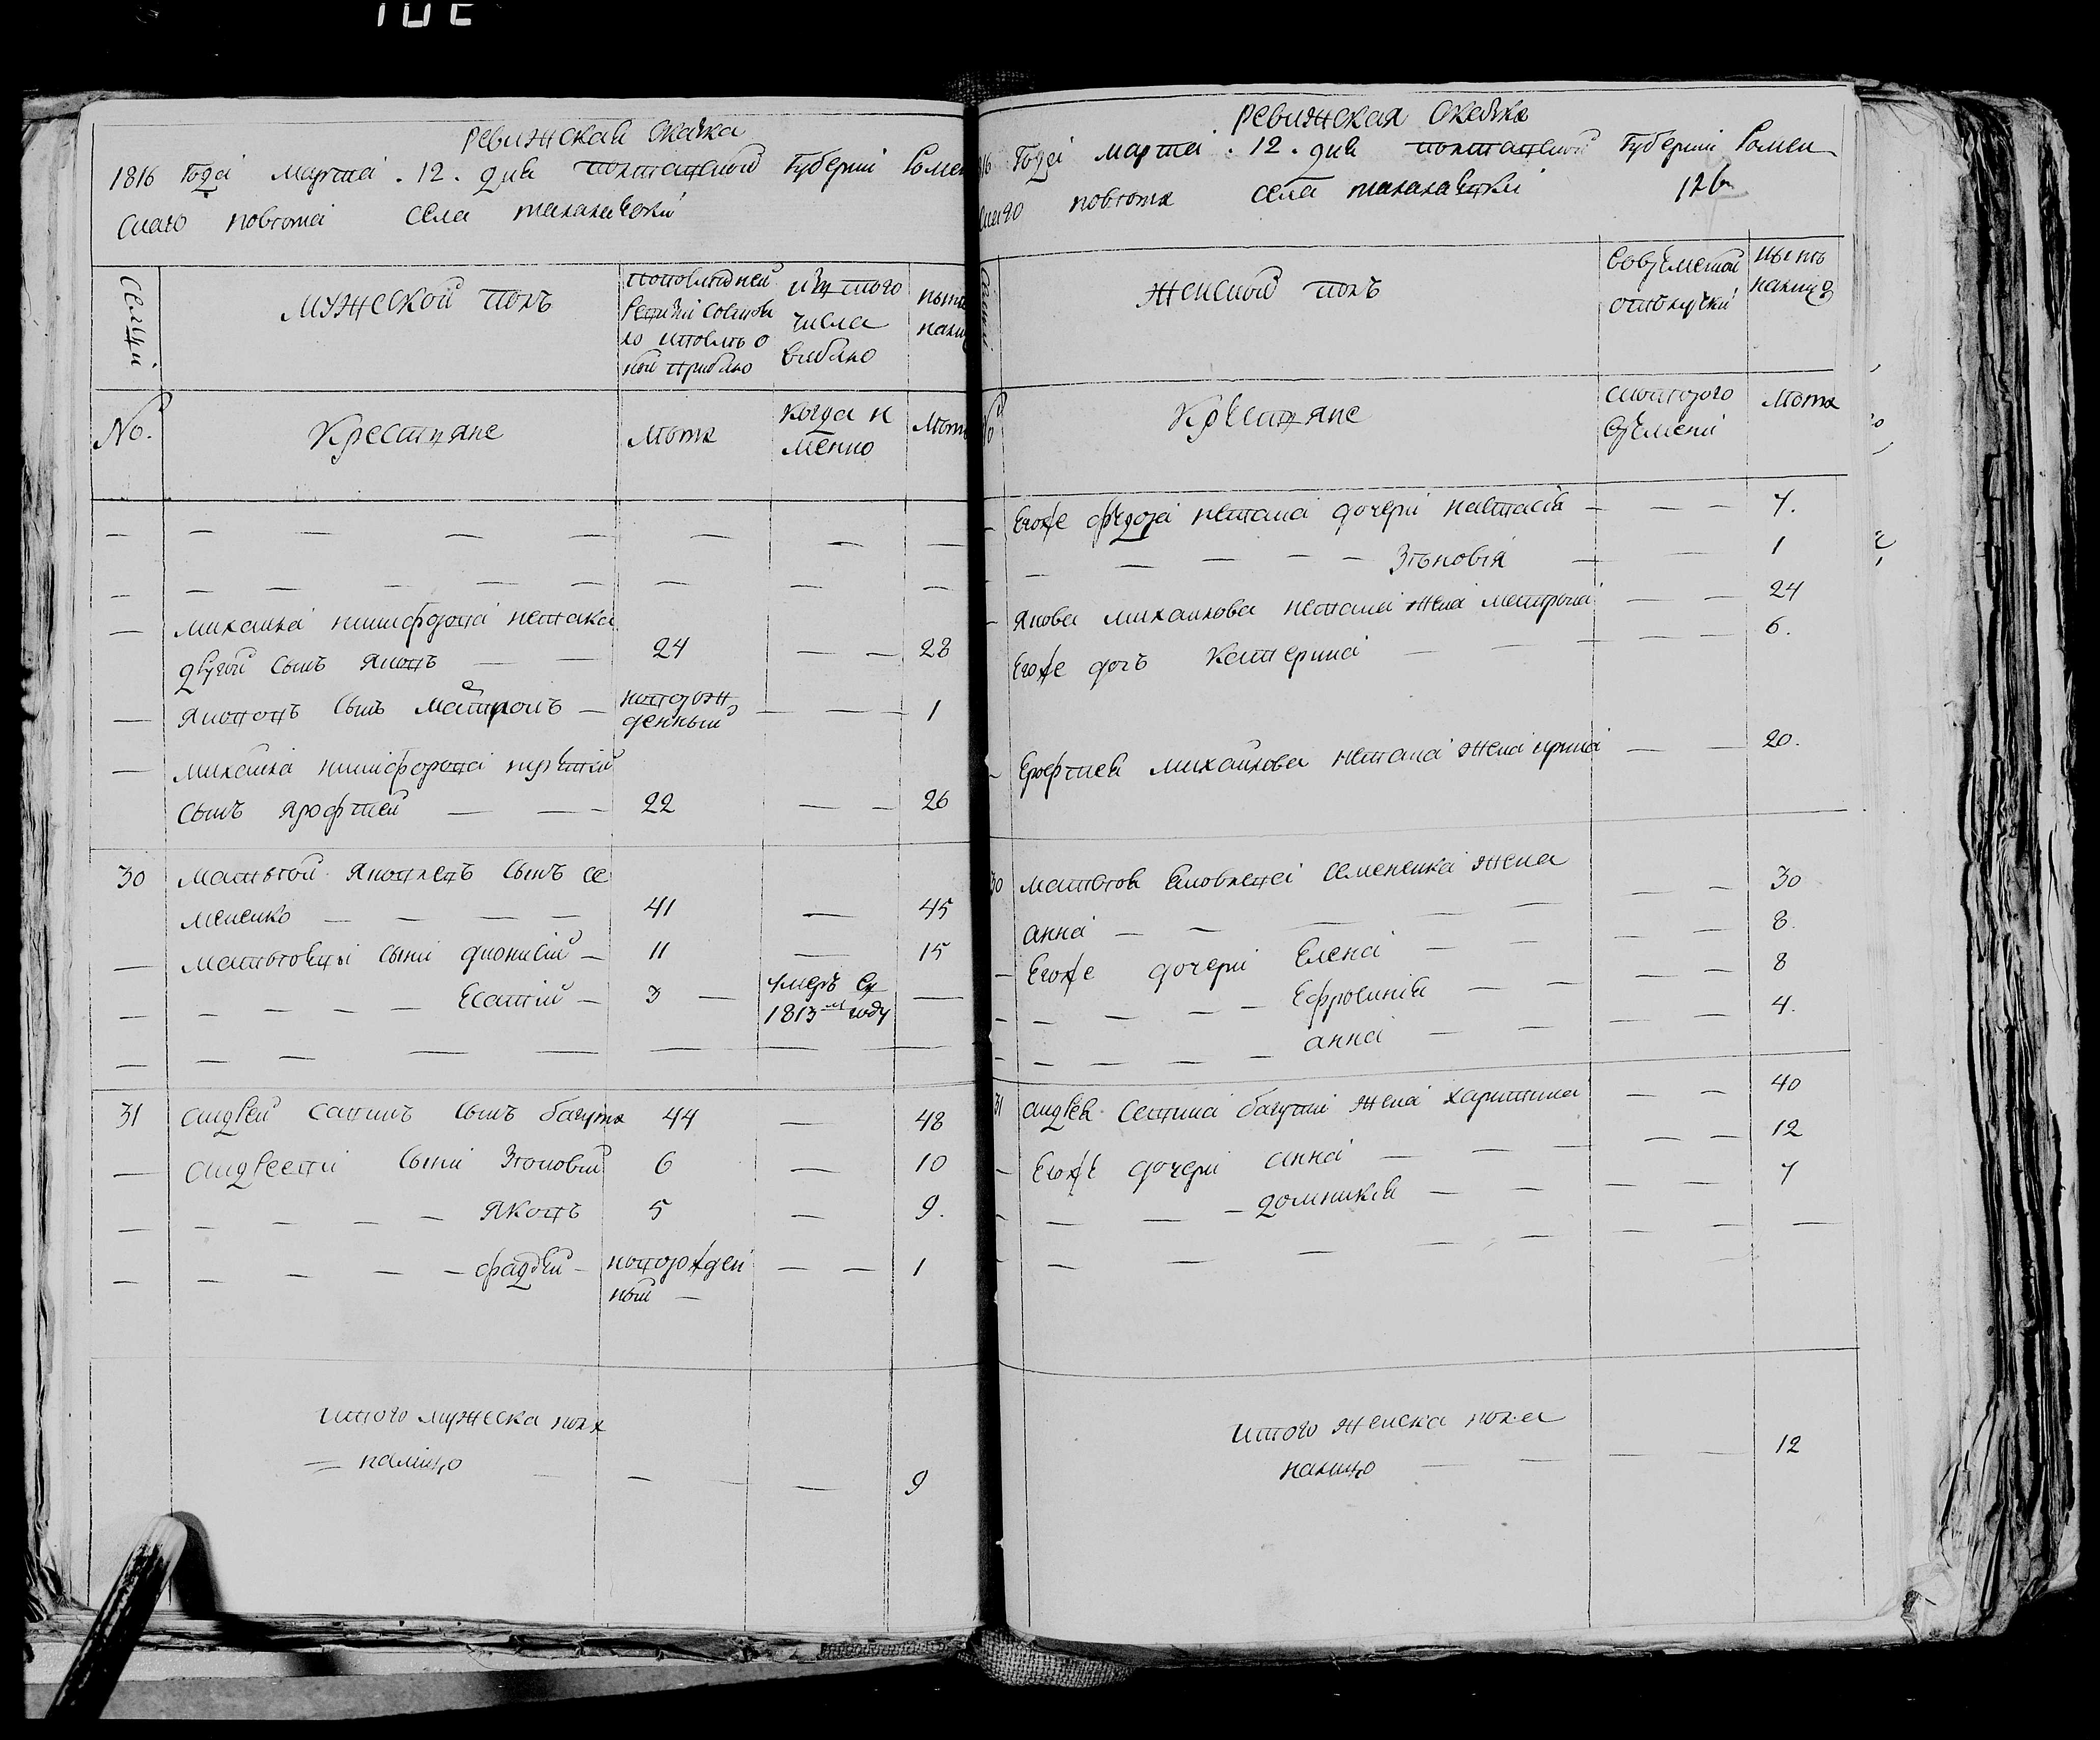 Ревижская Скаска
1816 Года марта 12 дня полтавской Губерніи Ромен
скаго повета села талалаевки
Семьи
мужеской полъ
попоследней
Ревизіи состоя
ло ипосле о
ной прибыло
изъ того
числа
выбыло
ныне
нали
No.
Крестяне
Лета
когда и
менно
Лета
Михаила никифорова нетака
другой сынъ Яковъ — — 24 — — 28
Яковъ сынъ матронъ — новорож
денный — — 1
михаила никифорова третий
сынъ ярофтей — — 22 — — 26
30 Матвей Яковлевъ сынъ се
мененко — — — — 41 — 45
матвеевы сыни дионисій — 11 — 15
— — — — — Есатій — 3 — умеръ въ
1813м году —
31 андрей савинъ сынъ багута 44 — 48
— андреевы сыни Зеновій 6 — 10
— — — — — Яковъ 5 — 9.
— — — — — фадей — новорожден
ный — — — 1
итого мужеска пола
налицо — — — 9
Ревижская Скаска
16 Года марта 12 дня полтавской Губерніи Ромен
скаго повета села талалаевки
126
Женской полъ
вовременой
отлучки
ныне
налицо
Крестяне
скоторого
времени
Лета
Егоже федора нетака дочери настасія — — — 7.
— — — — — Зеновія — — 1
Якова михаилова нетака жена матрона — — 24
Егоже дочь катерина — — — — 6.
Ерофтея Михайлова нетака жена ирина — — 20.
30 матвея Яковлева семененка жена
анна — — — — — — — 30
— Егоже дочери Елена — — — — 8.
— — — — — Ефросинія — — — — 8
— — — — — анна — — — — 4.
31 андрея Савина багути жена харитина — — 40
— Егоже дочери анна — — — — — 12
— — — — домникія — — — — 7
итого женска пола
налицо — — — — 12